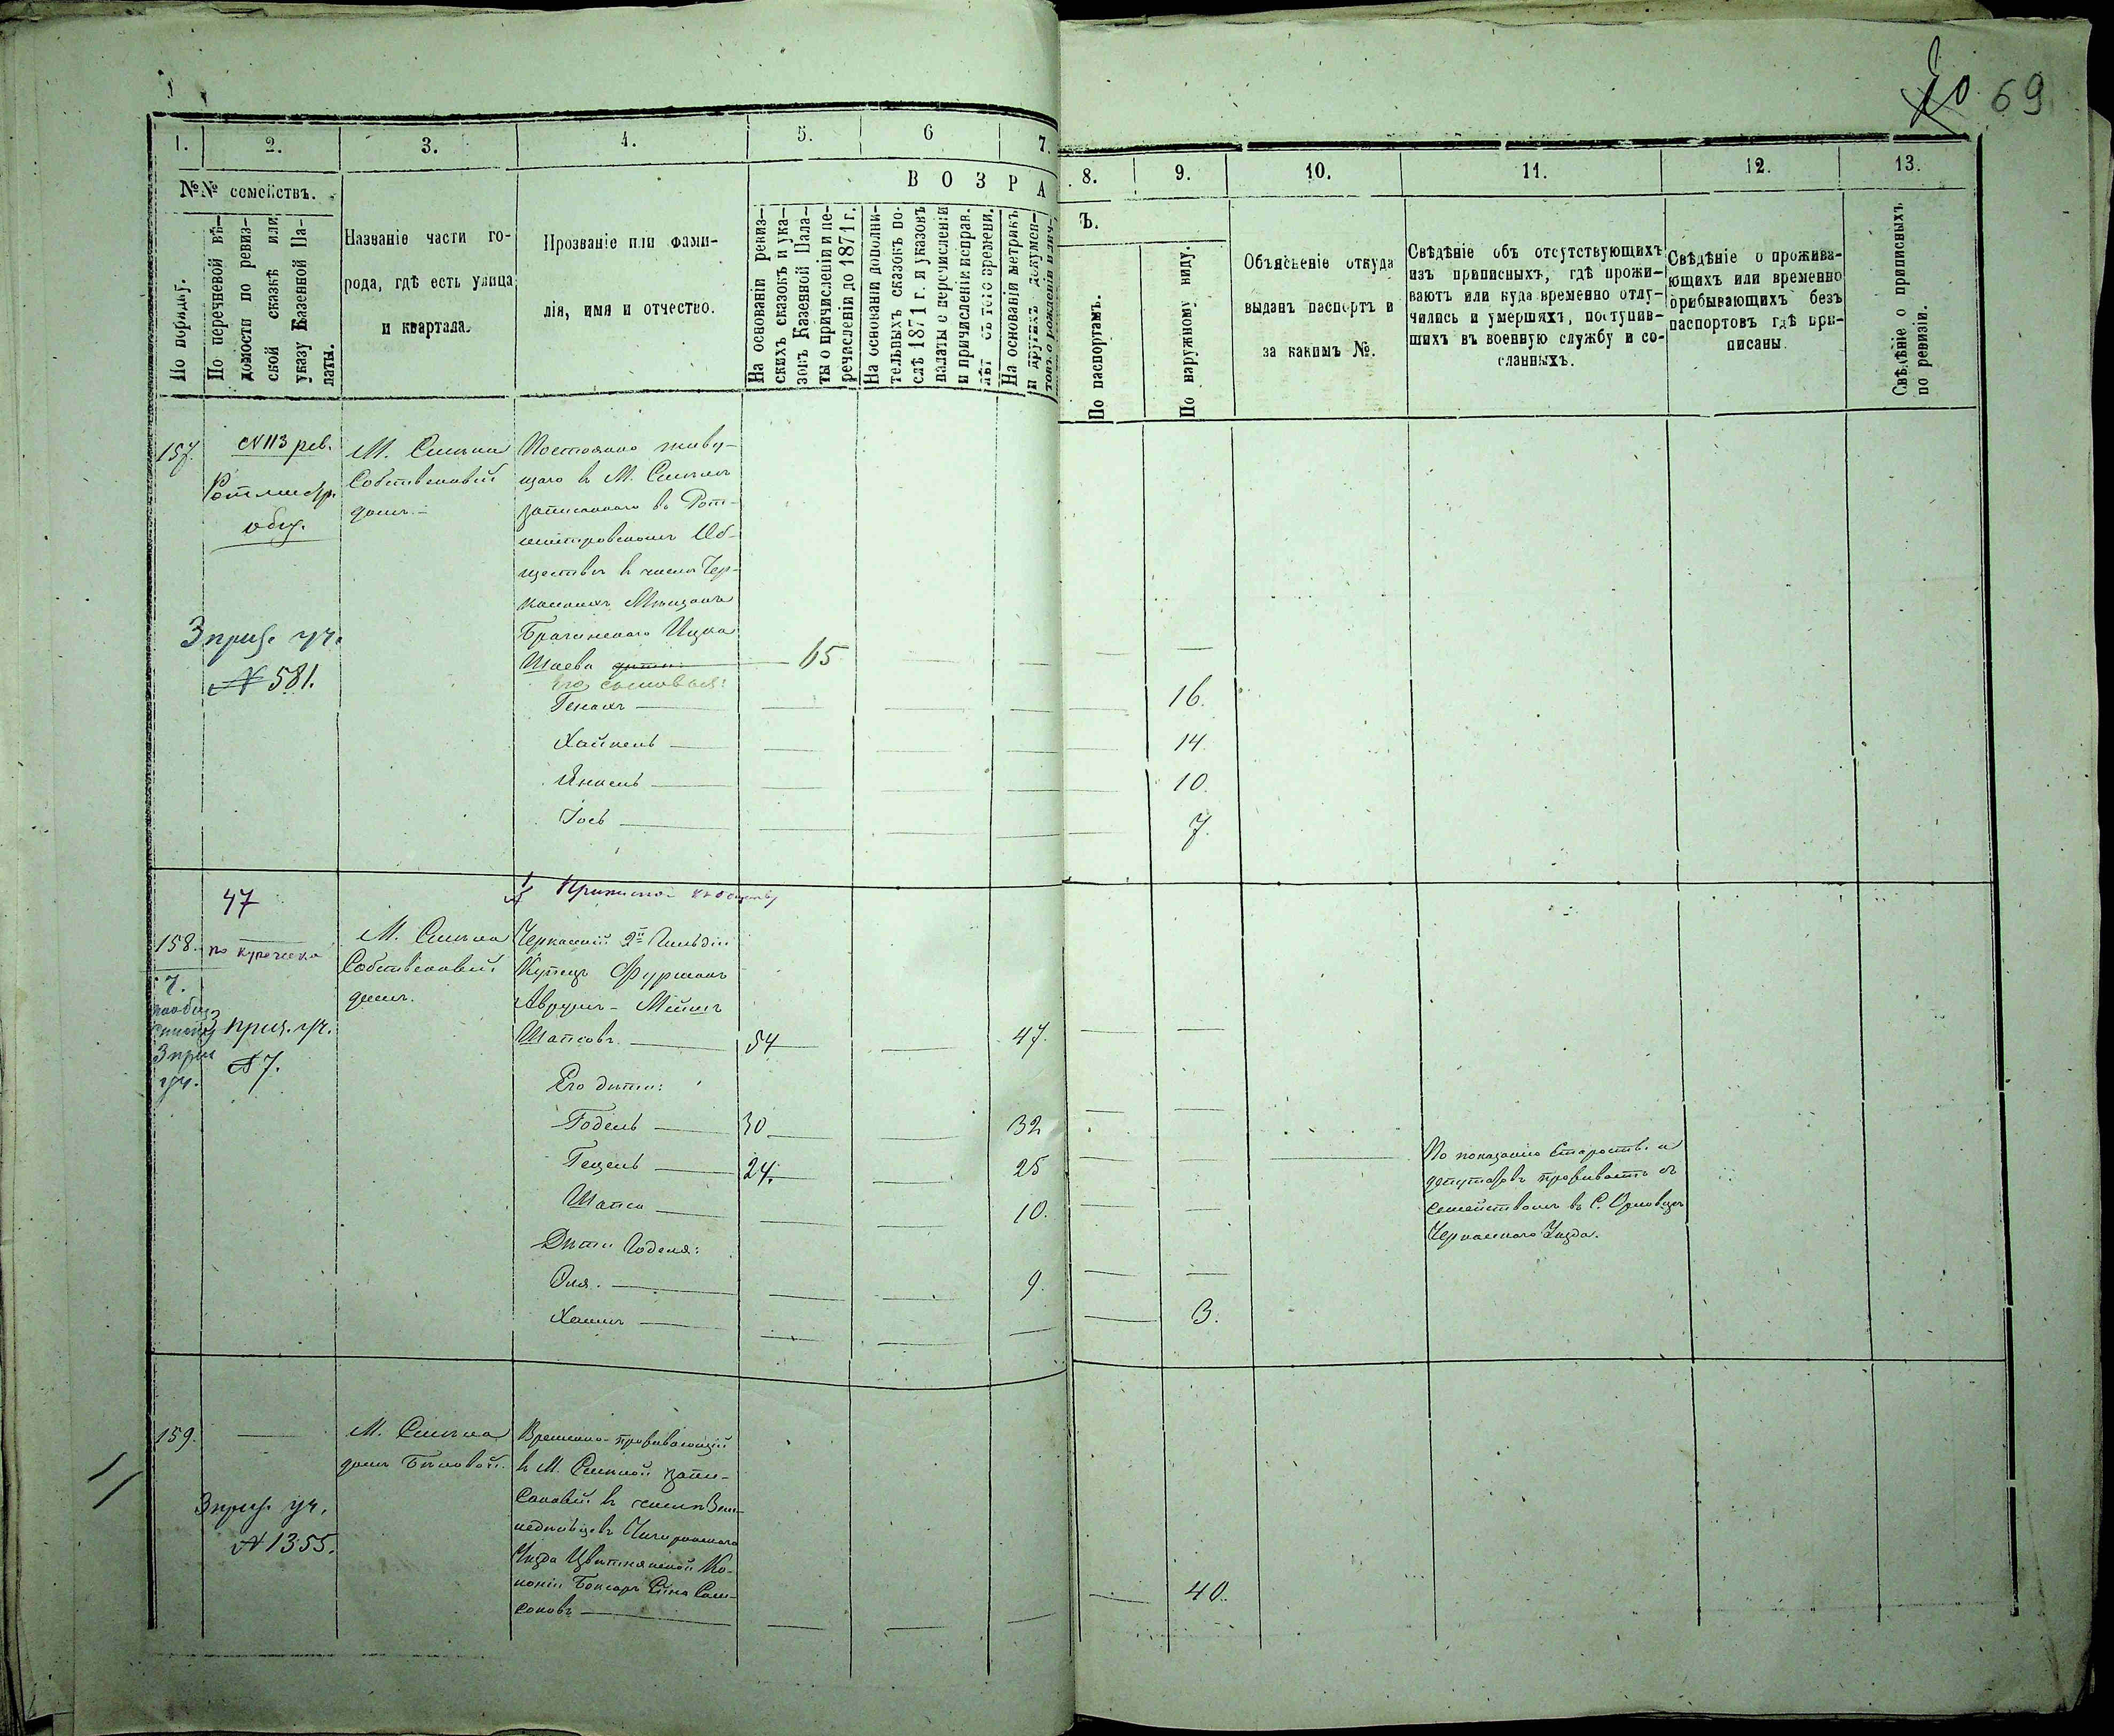 10 69
1. 2. 3. 4. 5. 6 7. 8. 9. 10. 11. 12. 13.
№№ семействъ.
В О З Р А
Ъ.
По порядку.
По перечневой вѣ-
домости по ревиз-
ской сказкѣ или
указу Казенной Па-
латы.
Названіе части го-
рода, гдѣ есть улица
и квартала.
Прозваніе или фами-
лія, имя и отчество.
На основаніи ревиз-
скихъ сказокъ и ука-
зокъ Казенной Пала-
ты о причисленіи и пе-
речисленіи до 1871 г.
На основаніи дополни-
тельныхъ сказокъ по-
слѣ 1871 г. и указовъ
палаты о перечисленіи
и причисленіи исправ.
лѣт съ того времени.
На основаніи метрикъ
и другихъ докумен-
По паспортамъ.
По наружному виду.
Объясненіе откуда
выданъ паспортъ и
за какимъ №.
Свѣдѣніе объ отсутствующихъ
изъ приписныхъ, гдѣ прожи-
ваютъ или куда временно отлу-
чились и умершихъ, поступив-
шихъ въ военную службу и со-
сланныхъ.
Свѣдѣніе о прожива-
ющихъ или временно
прибывающихъ безъ
паспортовъ гдѣ при-
писаны.
Свѣдѣніе о приписныхъ
по ревизіи.
157.
N 113 рев.
Ротмистр.
общ.
3 приз. уч.
N 581.
М. Смѣла
Собственный
домъ.
Постоянно живу-
щаго в М. Смѣлѣ
записаннаго въ Рот-
мистровскомъ Об-
ществѣ в числѣ Чер-
каскихъ Мѣщанъ
Брагинскаго Ицка
Шаева дѣти: 65
Его сыновья:
Генахъ 16.
Хайкель 14
Янкель 10.
Іось 7.
47
Приписной к обществу
158.
по купечески
7.
по общ.
списку
3 приз
уч.
приз. уч.
N 7.
М. Смѣла
Собственный
домъ.
Черкаскій 2й Гильдіи
Купецъ Фурманъ
Аврумъ-Мейшъ
Шапсовъ 54 47.
Его дѣти:
Годель 30 32
Гецель 24. 25
Шапса 10.
Дѣти Годеля:
Эля. 9.
Хаимъ 3.
По показанію Старост. и
депутатовъ проживаетъ съ
Семействомъ въ С. Орловцѣ
Черкаскаго Уѣзда.
159.
3 приз. уч.
N 1355.
М. Смѣла
домъ Бѣловой.
Временно-проживающій
в М. Смѣлой запи-
санный в числѣ Зем-
ледѣльцевъ Чигиринскаго
Уѣзда Цвѣтнянской Ко-
лоніи Боксаръ Сина Сам-
соновъ 40.